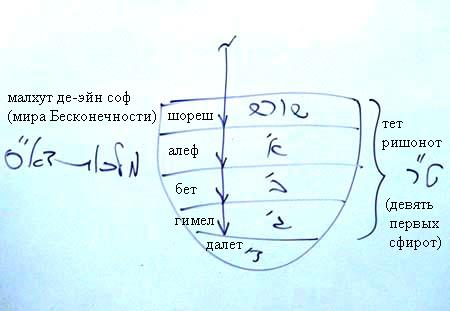 малхут де-эйн соф
(мира Бесконечности)
מלכות דא"ס
шореш שורש
алеф א'
бет ב'
гимел ג'
далет ד'
тет
ришонот
ט"ר
(девять
первых
сфирот)